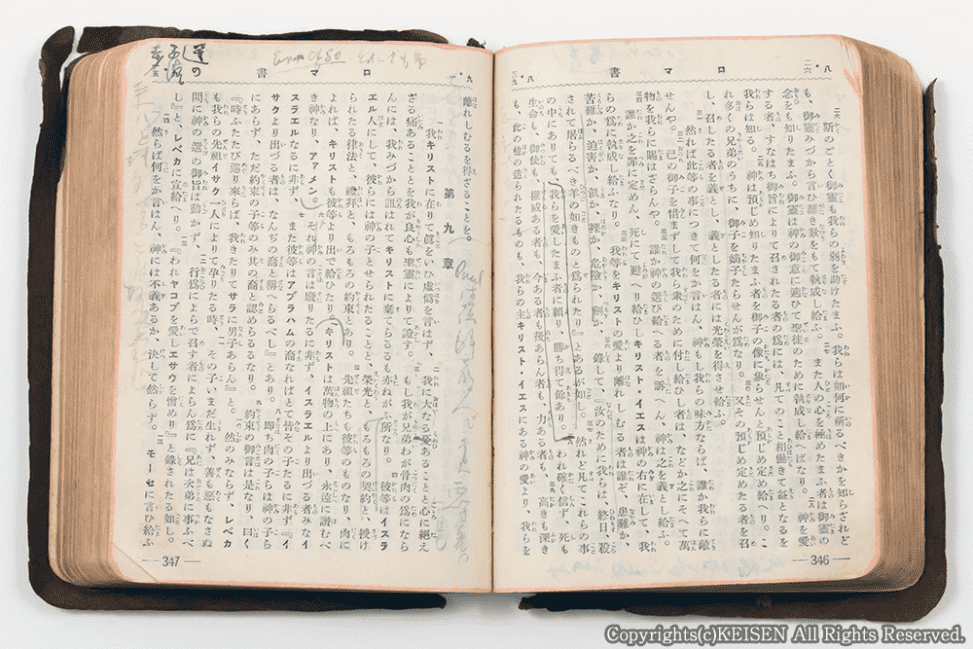 八・二六
ロマ書
八・三九
斯のごとく御靈も我らの弱を助けたまふ。我らは如何に祈るべきかを知らざれど
も、御靈みづから言ひ難き歎をもて執成し給ふ。また人の心を極めたまふ者は御靈の
念をも知りたまふ。御靈は神の御意に適ひて聖徒のために執成し給へばなり。神を愛
する者、すなはち御旨によりて召されたる者の爲には、凡てのこと相働きて益となるを
我らは知る。神は預じめ知りたまふ者を御子の像に象らせんと預じめ定め給へり。こ
れ多くの兄弟のうちに、御子を嫡子たらせんが爲なり。又その預じめ定めたる者を召
し、召したる者を義とし、義としたる者には光榮を得させ給ふ。
然れば此等の事につきて何をか言はん、神もし我らの味方ならば、誰か我らに敵
せんや。己の御子を惜まずして我ら衆のために付し給ひし者は、などか之にそへて萬
物を我らに賜はざらんや。誰か神の選び給へる者を訴へん、神は之を義とし給ふ。
誰か之を罪に定めん、死にて甦へり給ひしキリスト・イエスは神の右に在して、我
らの爲に執成し給ふなり。我等をキリストの愛より離れしむる者は誰ぞ、患難か、
苦難か、迫害か、飢か、裸か、危險か、劍か。錄して『汝のために我らは、終日、殺
されて屠らるべき羊の如きものと爲られたり』とあるが如し。然れど凡てこれらの事
の中にありても、我らを愛したまふ者に頼り、勝ち得て餘あり。われ確く信ず、死も
生命も、御使も、權威ある者も、今ある者も後あらん者も、力ある者も、高きも深き
も、此の他の造られたるものも、我らの主キリスト・イエスにある神の愛より、我らを
346
ロマ書
離れしむるを得ざることを。
第九章
我キリストに在りて眞をいひ虛僞を言はず、我に大なる憂あることと心に絕え
ざる痛あることとを我が良心も聖靈によりて證す。もし我が兄弟わが骨肉の爲になら
んには、我みづから詛はれてキリストに棄てらるるも亦ねがふ所なり。彼等はイスラ
エル人にして、彼らには神の子とせられたることと、榮光と、もろもろの契約と、授け
られたる律法と、禮拜と、もろもろの約束とあり。先祖たちも彼等のものなり、肉に
よれば、キリストも彼等より出で給ひたり。キリストは萬物の上にあり、永遠に讃むべ
き神なり、アァメン。それ神の言は廢りたるに非ず。イスラエルより出づる者みなイ
スラエルなるに非ず。また彼等はアブラハムの裔なればとて皆その子たるに非ず『イ
サクより出づる者は、なんぢの裔と稱へらるべし』とあり。即ち肉の子らは神の子ら
にあらず、ただ約束の子等のみ其の裔と認めらるるなり。約束の御言は是なり、曰く
『時ふたたび巡り來らば、我きたりてサラに男子あらん』と。然のみならず、レベカ
も我らの先祖イサク一人によりて孕りたる時、その子いまだ生れず、善も惡もなさぬ
間に神の選の御旨は動かず、行爲によらで召す者によらん爲に『兄は次弟に事ふべ
し』と、レベカに宣給へり。『われヤコブを愛しエサウを憎めり』と錄されたる如し。
然らば何をか言はん、神には不義あるか、決して然らず。モーセに言ひ給ふ
347
Copyrights(c)KEISEN All Rights Reserved.